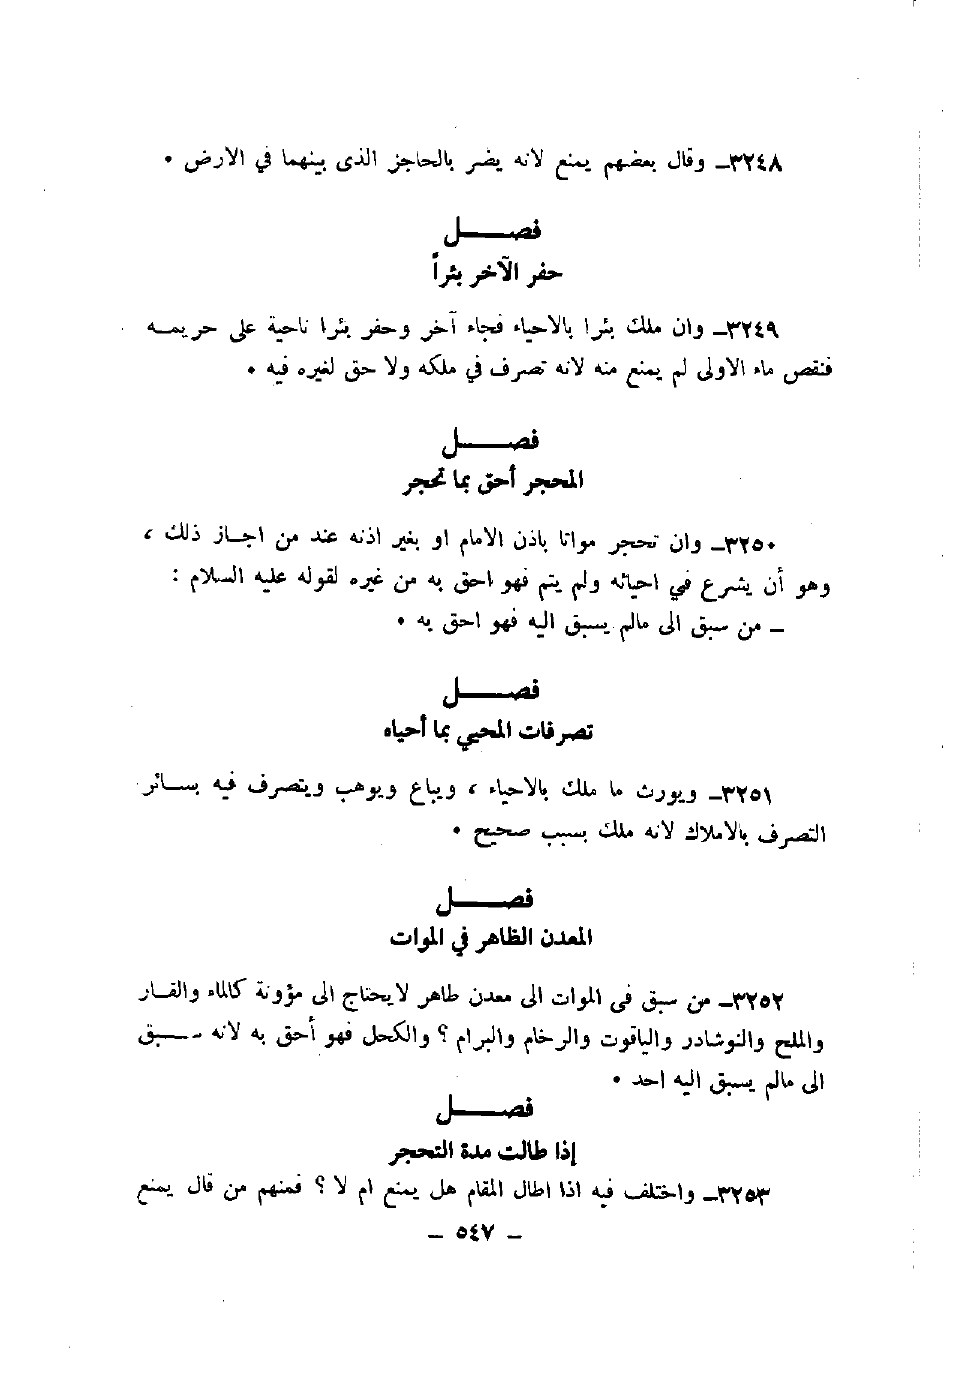 ٣٢٤٨ـ وقال بعضهم يمنع لانه يضر بالحاجز الذى بينهما في الارض •
فصـــــل
حفر الآخر بئراً
٣٢٤٩ـ وان ملك بئرا بالاحياء فجاء آخر وحفر بئرا ناحية على حريمـــه
فنقص ماء الاولى لم يمنع منه لانه تصرف في ملكه ولا حق لغيره فيه •
فصـــــل
المحجر أحق بما تحجر
٣٢٥٠ـ وان تحجر مواتا باذن الامام او بغير اذنه عند من اجـــاز ذلك ،
وهو أن يشرع في احيائه ولم يتم فهو احق به من غيره لقوله عليه السلام :
ـ من سبق الى مالم يسبق اليه فهو احق به •
فصـــــل
تصرفات المحيي بما أحياه
٣٢٥١ـ ويورث ما ملك بالاحياء ، ويباع ويوهب ويتصرف فيه بســـائر
التصرف بالاملاك لانه ملك بسبب صحيح •
فصـــــل
المعدن الظاهر في الموات
٣٢٥٢ـ من سبق فى الموات الى معدن ظاهر لايحتاج الى مؤونة كالماء والقـــار
والملح والنوشادر والياقوت والرخام والبرام ؟ والكحل فهو أحق به لانه ســـبق
الى مالم يسبق اليه احد •
فصـــــل
إذا طالت مدة التحجر
٣٢٥٣ـ واختلف فيه اذا اطال المقام هل يمنع ام لا ؟ فمنهم من قال يمنع
ـ ٥٤٧ ـ